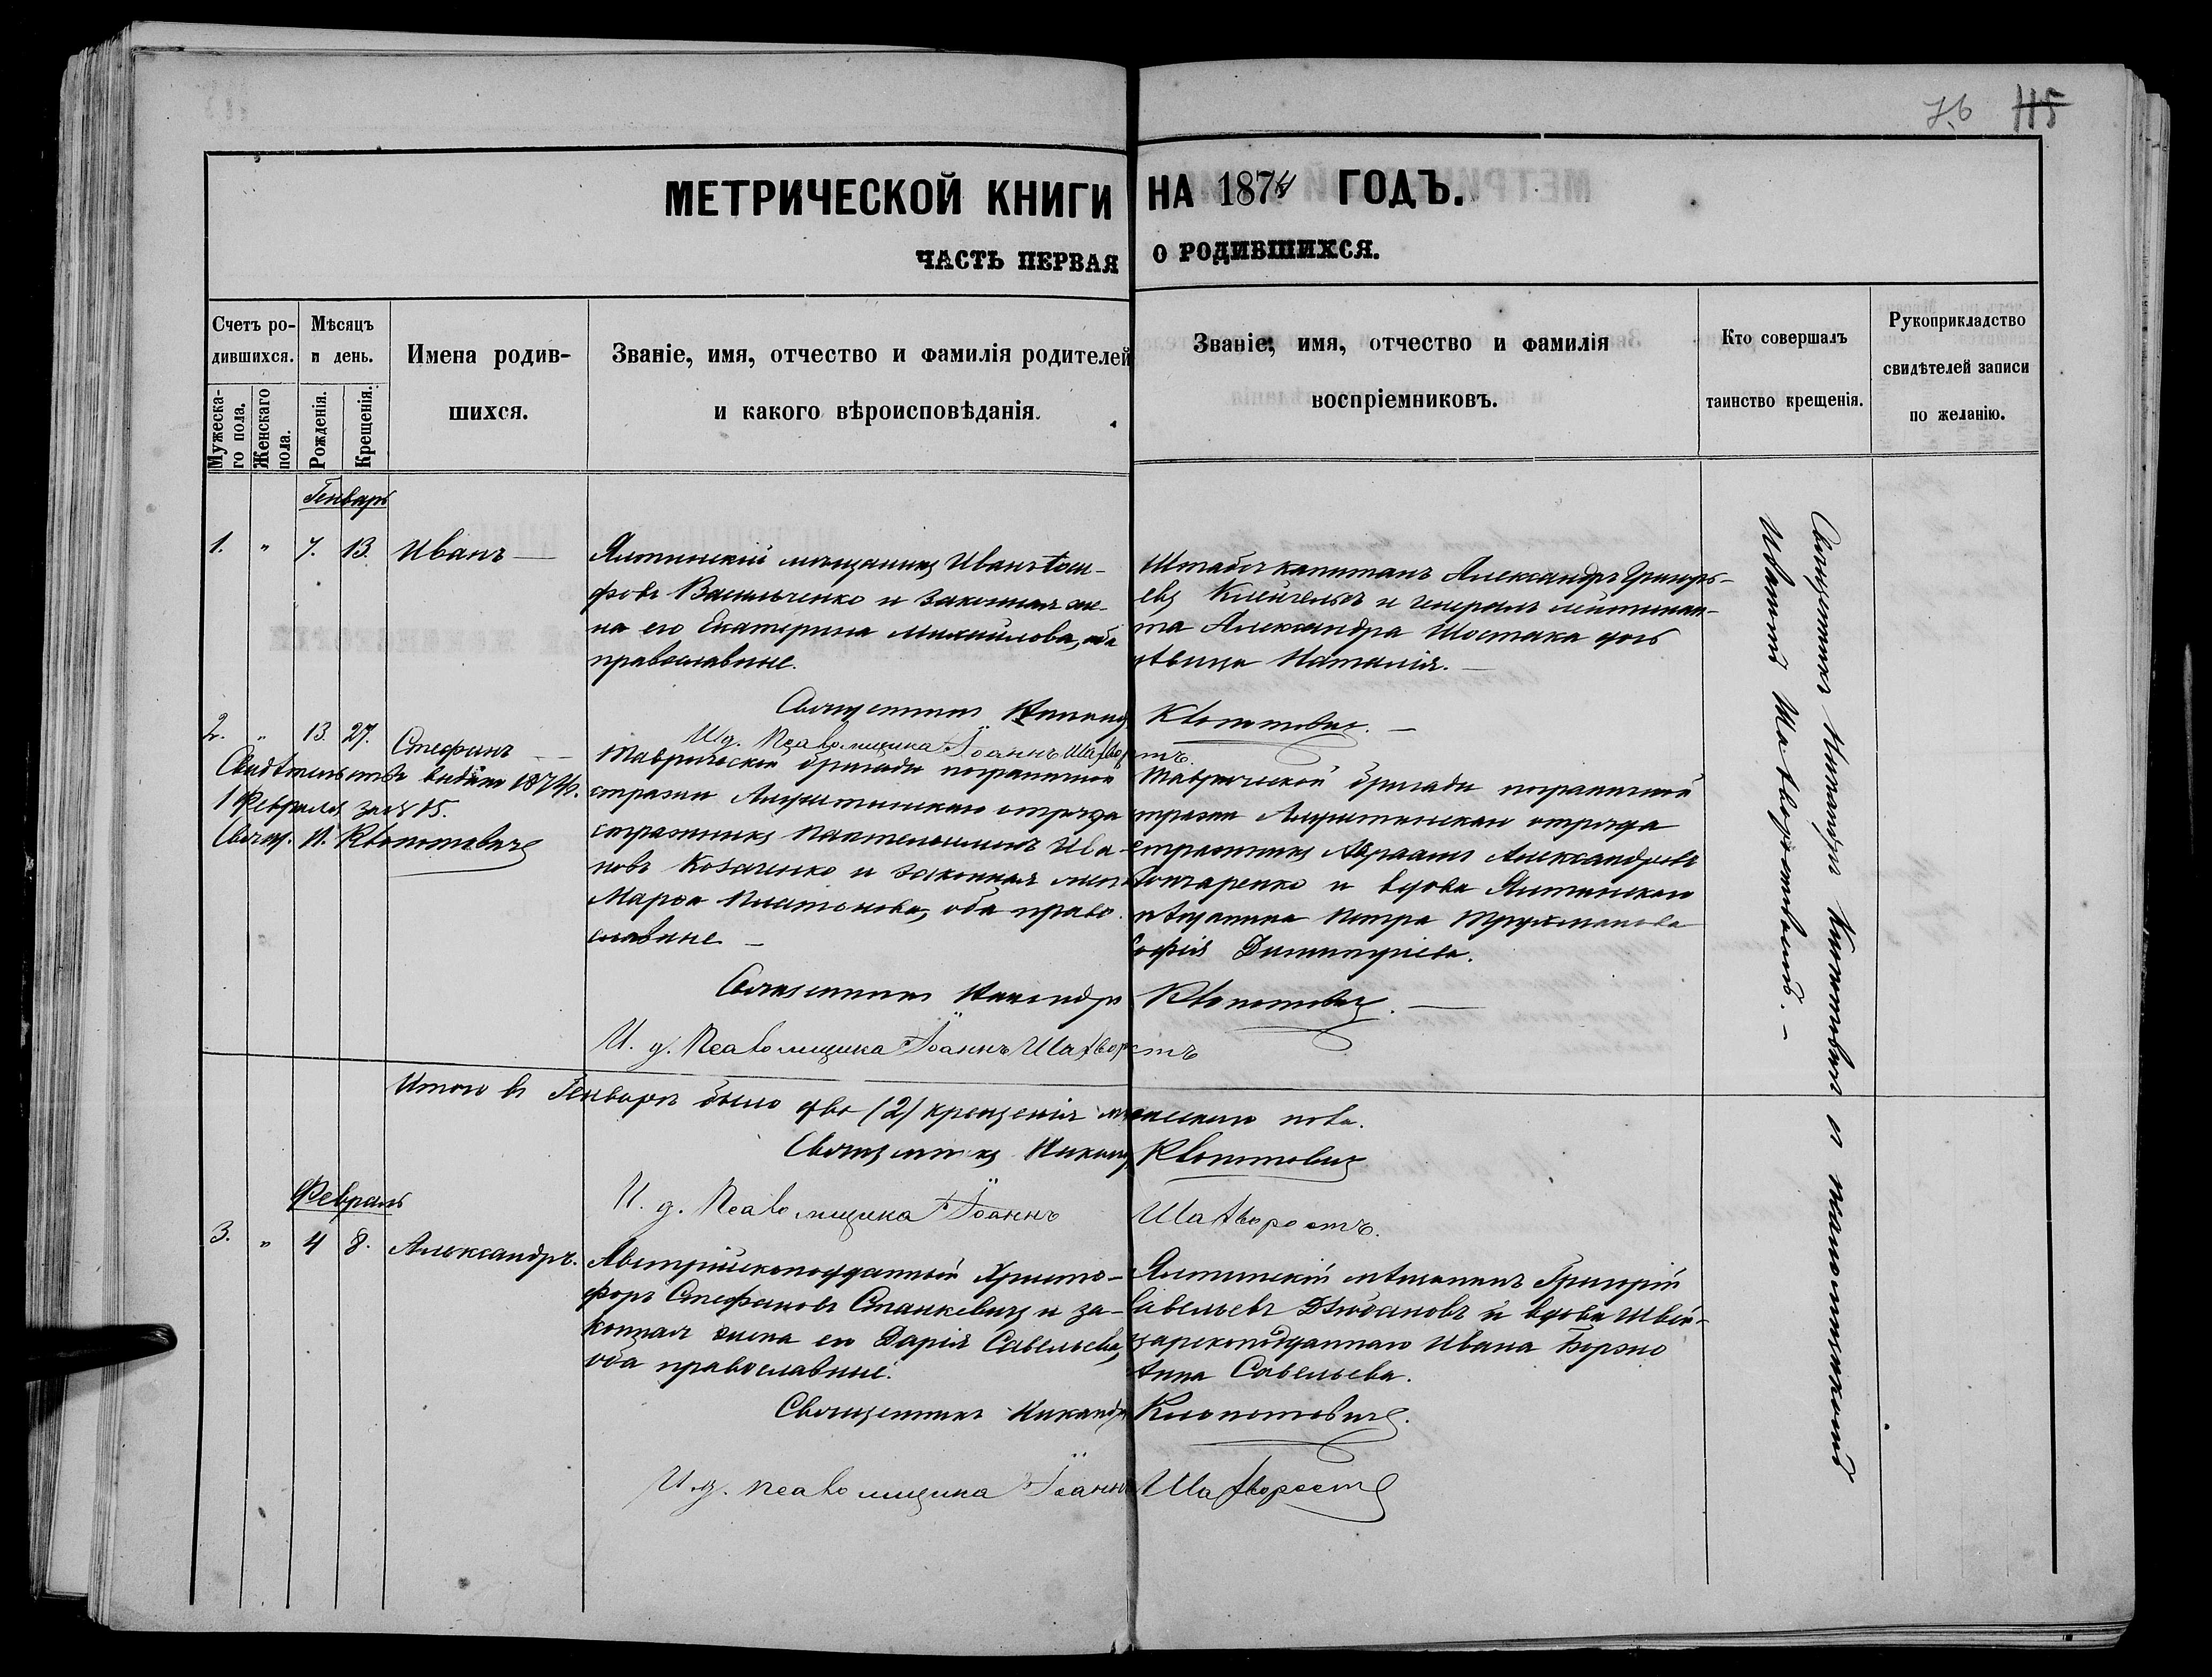 76 115
МЕТРИЧЕСКОЙ КНИГИ НА 1874 ГОДЪ.
ЧАСТЬ ПЕРВАЯ О РОДИВШИХСЯ.
Счетъ родившихся.
Мужескаго пола.
Женскаго пола.
Мѣсяцъ и день.
Рожденія.
Крещенія.
Имена родив-
шихся.
Званіе, имя, отчество и фамилія родителей
и какого вѣроисповѣданія.
Званіе, имя, отчество и фамилія
воспріемниковъ.
Кто совершалъ
таинство крещенія.
Рукоприкладство
свидѣтелей записи
по желанію.
Генварь
1. " 7. 13. Иванъ —
Ялтинскій мѣщанинъ Иванъ
Васильченко и законная же-
на его Екатерина Михайлова, оба
православные.
Штабсъ капитанъ Александръ Григорь-
евъ и генералъ лейтенан-
та Александра Шостака дочь
дѣвица Наталія. —
Священникъ Никандръ Клопотовичъ. —
И. д. Псаломщика Іоаннъ Шатворостъ.
2. " 13. 27. Стефанъ —
Свидѣтельство видано 1874 г.
1 Февраля за № 15.
Священ. Н. Клопотовичъ
Таврической бригады пограничной
стражи Алуштинскаго отряда
стражникъ Пантелеимонъ Ива-
новъ Козаченко и законная жена
Марѳа Платонова, оба право-
славные —
Таврической бригады пограничной
стражи Алуштинскаго отряда
стражникъ Авраамъ Александровъ
Гончаренко и вдова Ялтинскаго
мѣщанина Петра
Софія Димитріева.
Священникъ Никандръ Клопотовичъ. —
И. д. Псаломщика Іоаннъ Шатворостъ
Итого въ Генварѣ было два (2) крещенія мужескаго пола.
Священникъ Никандръ Клопотовичъ
И. д. Псаломщика Іоаннъ Шатворостъ.
Февраль
3. " 4 8. Александръ.
Австрійскоподданный Христо-
форъ Стефановъ Станкевичъ и за-
конная жена его Дарія Савельева,
оба православные.
Ялтинскій мѣщанинъ Григорій
Савельевъ и вдова Швей-
царскоподданнаго Ивана
Анна Савельева.
Священникъ Никандръ Клопотовичъ.
И. д. Псаломщика Іоаннъ Шатворостъ
Священникъ Никандръ Клопотовичъ и псаломщикомъ
Иваномъ Шатворостомъ. —